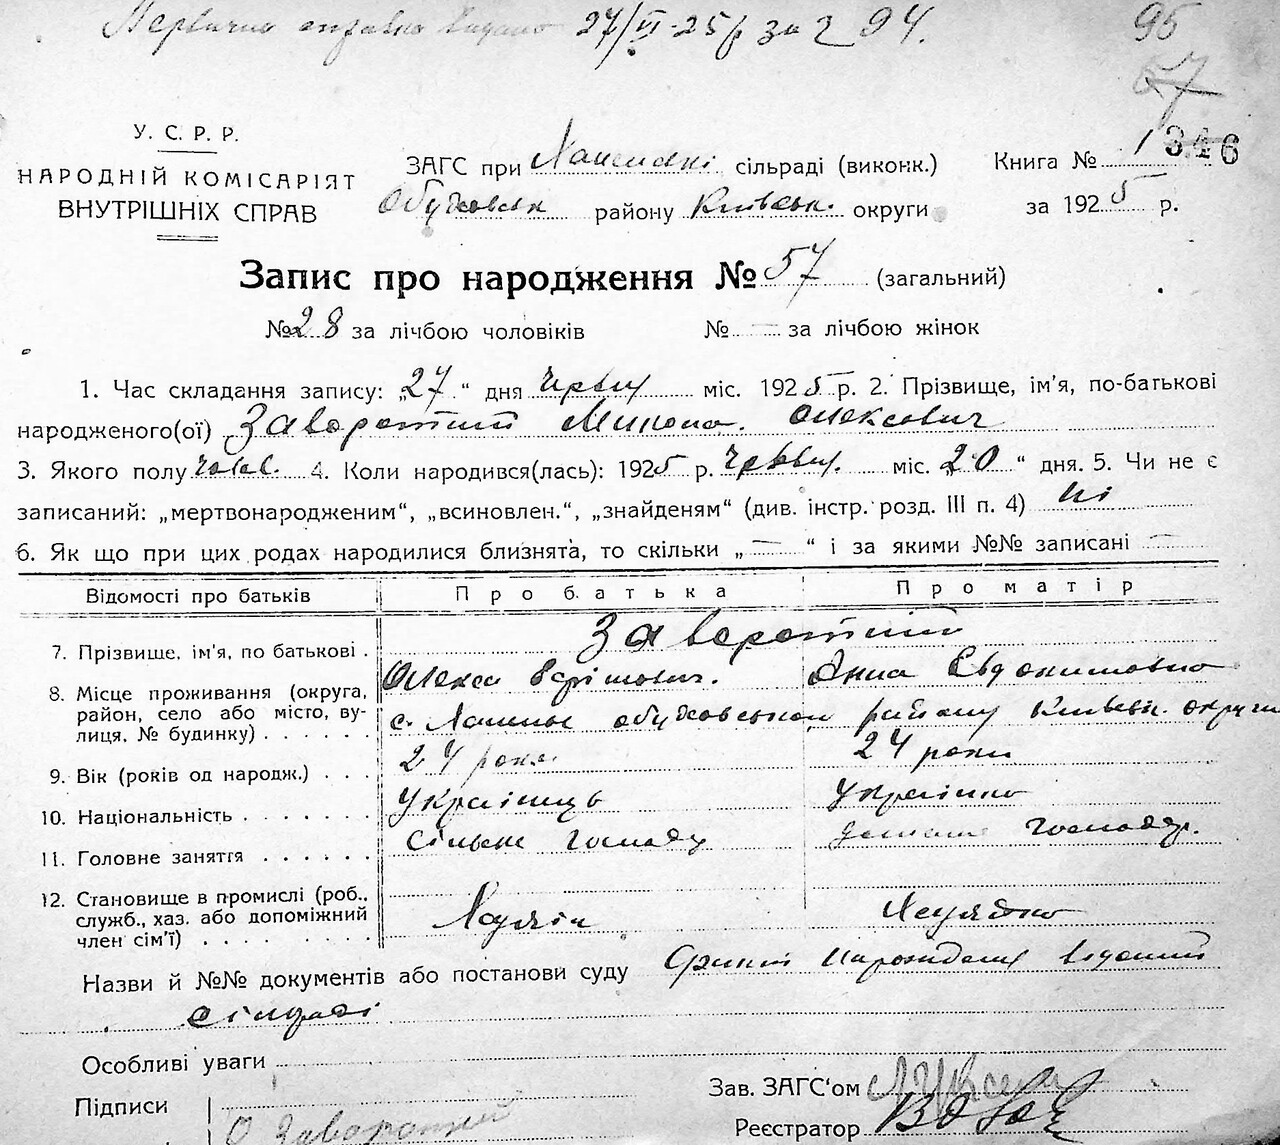 Первична справка видано 27/VI-25 р за № 94.
95
67
У. С. Р. Р.
НАРОДНІЙ КОМІСАРІЯТ
ВНУТРІШНІХ СПРАВ
ЗАГС при сільраді (виконк.)
Обухівськ району Київськ. округи
Книга № 1 346
за 1925 р.
Запис про народження № 57 (загальний)
№ 28 за лічбою чоловіків № — за лічбою жінок
1. Час складання запису: „27“ дня червня міс. 1925 р. 2. Прізвище, ім'я, по-батькові
народженого(ої) Заворотний Микола. Олексович
3. Якого полу чолов. 4. Коли народився(лась): 1925 р. червня. міс. „20“ дня. 5. Чи не є
записаний: „мертвонародженим“, „всиновлен.“, „знайденям“ (див. інстр. розд. III п. 4) ні
6. Як що при цих родах народилися близнята, то скільки „—“ і за якими №№ записані —
Відомості про батьків Про батька Про матір
7. Прізвище, ім'я, по батькові . Заворотний
Олекса Анна Євдокимовна
8. Місце проживання (округа, район, село або місто, вулиця, № будинку) . . . . . . с. району Київськ. округи
9. Вік (років од народж.) . . . 24 роки 24 роки
10. Національність . . . . . . . Українець Українка
11. Головне заняття . . . . . . Сільське господ домашнє господар.
12. Становище в промислі (роб., служб., хаз. або допоміжний член сім'ї) . . . . . . Хазяїн
Назви й №№ документів або постанови суду народження виданий
сілради
Особливі уваги
Підписи О Заворотний
Зав. ЗАГС'ом
Реєстратор